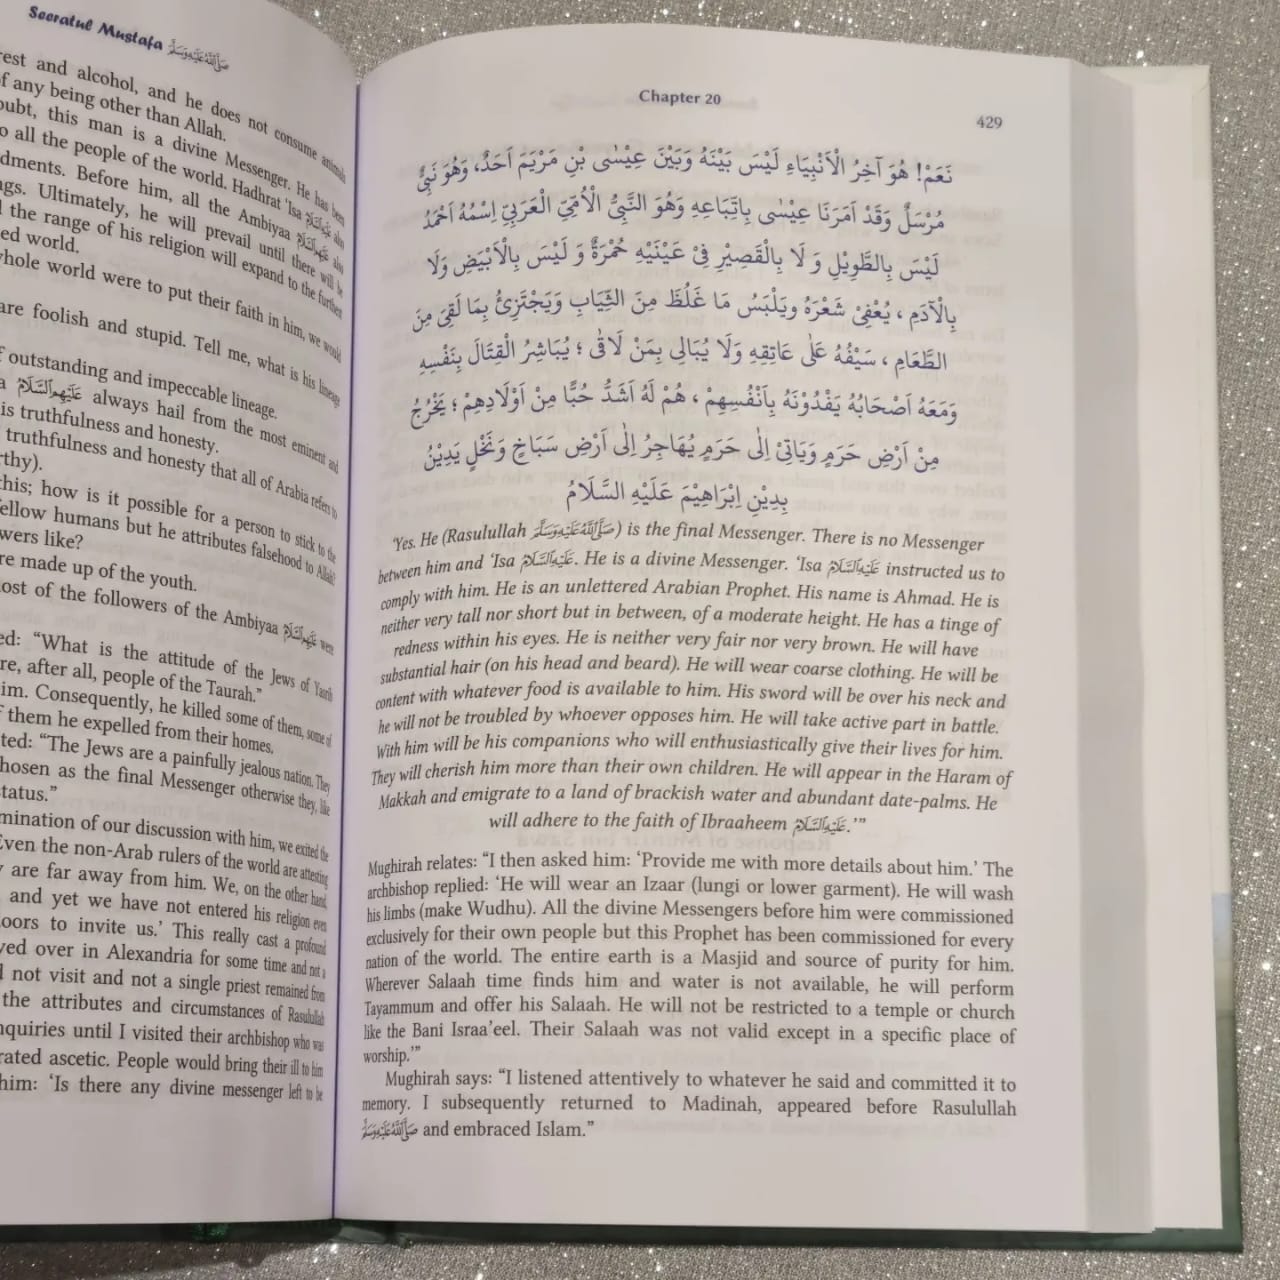 Seeratul Mustafa ﷺ
rest and alcohol, and he does not consume animals
of any being other than Allah.
doubt, this man is a divine Messenger. He has been
to all the people of the world. Hadhrat 'Isa عَلَيْهِ السَّلَامُ also
Before him, all the Ambiyaa عَلَيْهِمُ السَّلَامُ also
Ultimately, he will prevail until there will be
the range of his religion will expand to the furthest
world.
whole world were to put their faith in him, we would
are foolish and stupid. Tell me, what is his lineage
of outstanding and impeccable lineage.
عَلَيْهِمُ السَّلَامُ always hail from the most eminent and
is truthfulness and honesty.
truthfulness and honesty that all of Arabia refers to
this; how is it possible for a person to stick to the
fellow humans but he attributes falsehood to Allah?
like?
made up of the youth.
most of the followers of the Ambiyaa عَلَيْهِمُ السَّلَامُ were
"What is the attitude of the Jews of Yasrib
after all, people of the Taurah."
him. Consequently, he killed some of them, some of
of them he expelled from their homes.
"The Jews are a painfully jealous nation. They
chosen as the final Messenger otherwise they, like
status."
of our discussion with him, we exited the
Even the non-Arab rulers of the world are attesting
are far away from him. We, on the other hand,
and yet we have not entered his religion even
doors to invite us.' This really cast a profound
over in Alexandria for some time and not a
not visit and not a single priest remained from
the attributes and circumstances of Rasulullah
inquiries until I visited their archbishop who was
ascetic. People would bring their ill to him
him: 'Is there any divine messenger left to be
Chapter 20
429
نَعَمْ! هُوَ آخِرُ الْاَنْبِيَاءِ لَيْسَ بَيْنَهُ وَبَيْنَ عِيْسٰى بْنِ مَرْيَمَ اَحَدٌ، وَهُوَ نَبِيٌّ
مُرْسَلٌ وَقَدْ اَمَرَنَا عِيْسٰى بِاتِّبَاعِهِ وَهُوَ النَّبِيُّ الْاُمِّيُّ الْعَرَبِيُّ اِسْمُهُ اَحْمَدُ
لَيْسَ بِالطَّوِيْلِ وَ لَا بِالْقَصِيْرِ فِيْ عَيْنَيْهِ حُمْرَةٌ وَ لَيْسَ بِالْاَبْيَضِ وَلَا
بِالْآدَمِ ، يُعْفِيْ شَعْرَهُ ويَلْبَسُ مَا غَلُظَ مِنَ الثِّيَابِ وَيَجْتَزِئُ بِمَا لَقِيَ مِنَ
الطَّعَامِ ، سَيْفُهُ عَلٰى عَاتِقِهِ وَلَا يُبَالِي بِمَنْ لَاقٰى ؛ يُبَاشِرُ الْقِتَالَ بِنَفْسِهِ
وَمَعَهُ اَصْحَابُهُ يَفْدُوْنَهُ بِاَنْفُسِهِمْ ، هُمْ لَهُ اَشَدُّ حُبًّا مِنْ اَوْلَادِهِمْ ؛ يَخْرُجُ
مِنْ اَرْضِ حَرَمٍ وَيَاتِيْ اِلٰى حَرَمٍ يُهَاجِرُ اِلٰى اَرْضِ سَبَاخٍ وَنَخْلٍ يَدِيْنُ
بِدِيْنِ اِبْرَاهِيْمَ عَلَيْهِ السَّلَامُ
'Yes. He (Rasulullah ﷺ) is the final Messenger. There is no Messenger
between him and 'Isa عَلَيْهِ السَّلَامُ. He is a divine Messenger. 'Isa عَلَيْهِ السَّلَامُ instructed us to
comply with him. He is an unlettered Arabian Prophet. His name is Ahmad. He is
neither very tall nor short but in between, of a moderate height. He has a tinge of
redness within his eyes. He is neither very fair nor very brown. He will have
substantial hair (on his head and beard). He will wear coarse clothing. He will be
content with whatever food is available to him. His sword will be over his neck and
he will not be troubled by whoever opposes him. He will take active part in battle.
With him will be his companions who will enthusiastically give their lives for him.
They will cherish him more than their own children. He will appear in the Haram of
Makkah and emigrate to a land of brackish water and abundant date-palms. He
will adhere to the faith of Ibraaheem عَلَيْهِ السَّلَامُ.'"
Mughirah relates: "I then asked him: 'Provide me with more details about him.' The
archbishop replied: 'He will wear an Izaar (lungi or lower garment). He will wash
his limbs (make Wudhu). All the divine Messengers before him were commissioned
exclusively for their own people but this Prophet has been commissioned for every
nation of the world. The entire earth is a Masjid and source of purity for him.
Wherever Salaah time finds him and water is not available, he will perform
Tayammum and offer his Salaah. He will not be restricted to a temple or church
like the Bani Israa'eel. Their Salaah was not valid except in a specific place of
worship.'"
Mughirah says: "I listened attentively to whatever he said and committed it to
memory. I subsequently returned to Madinah, appeared before Rasulullah
ﷺ and embraced Islam."